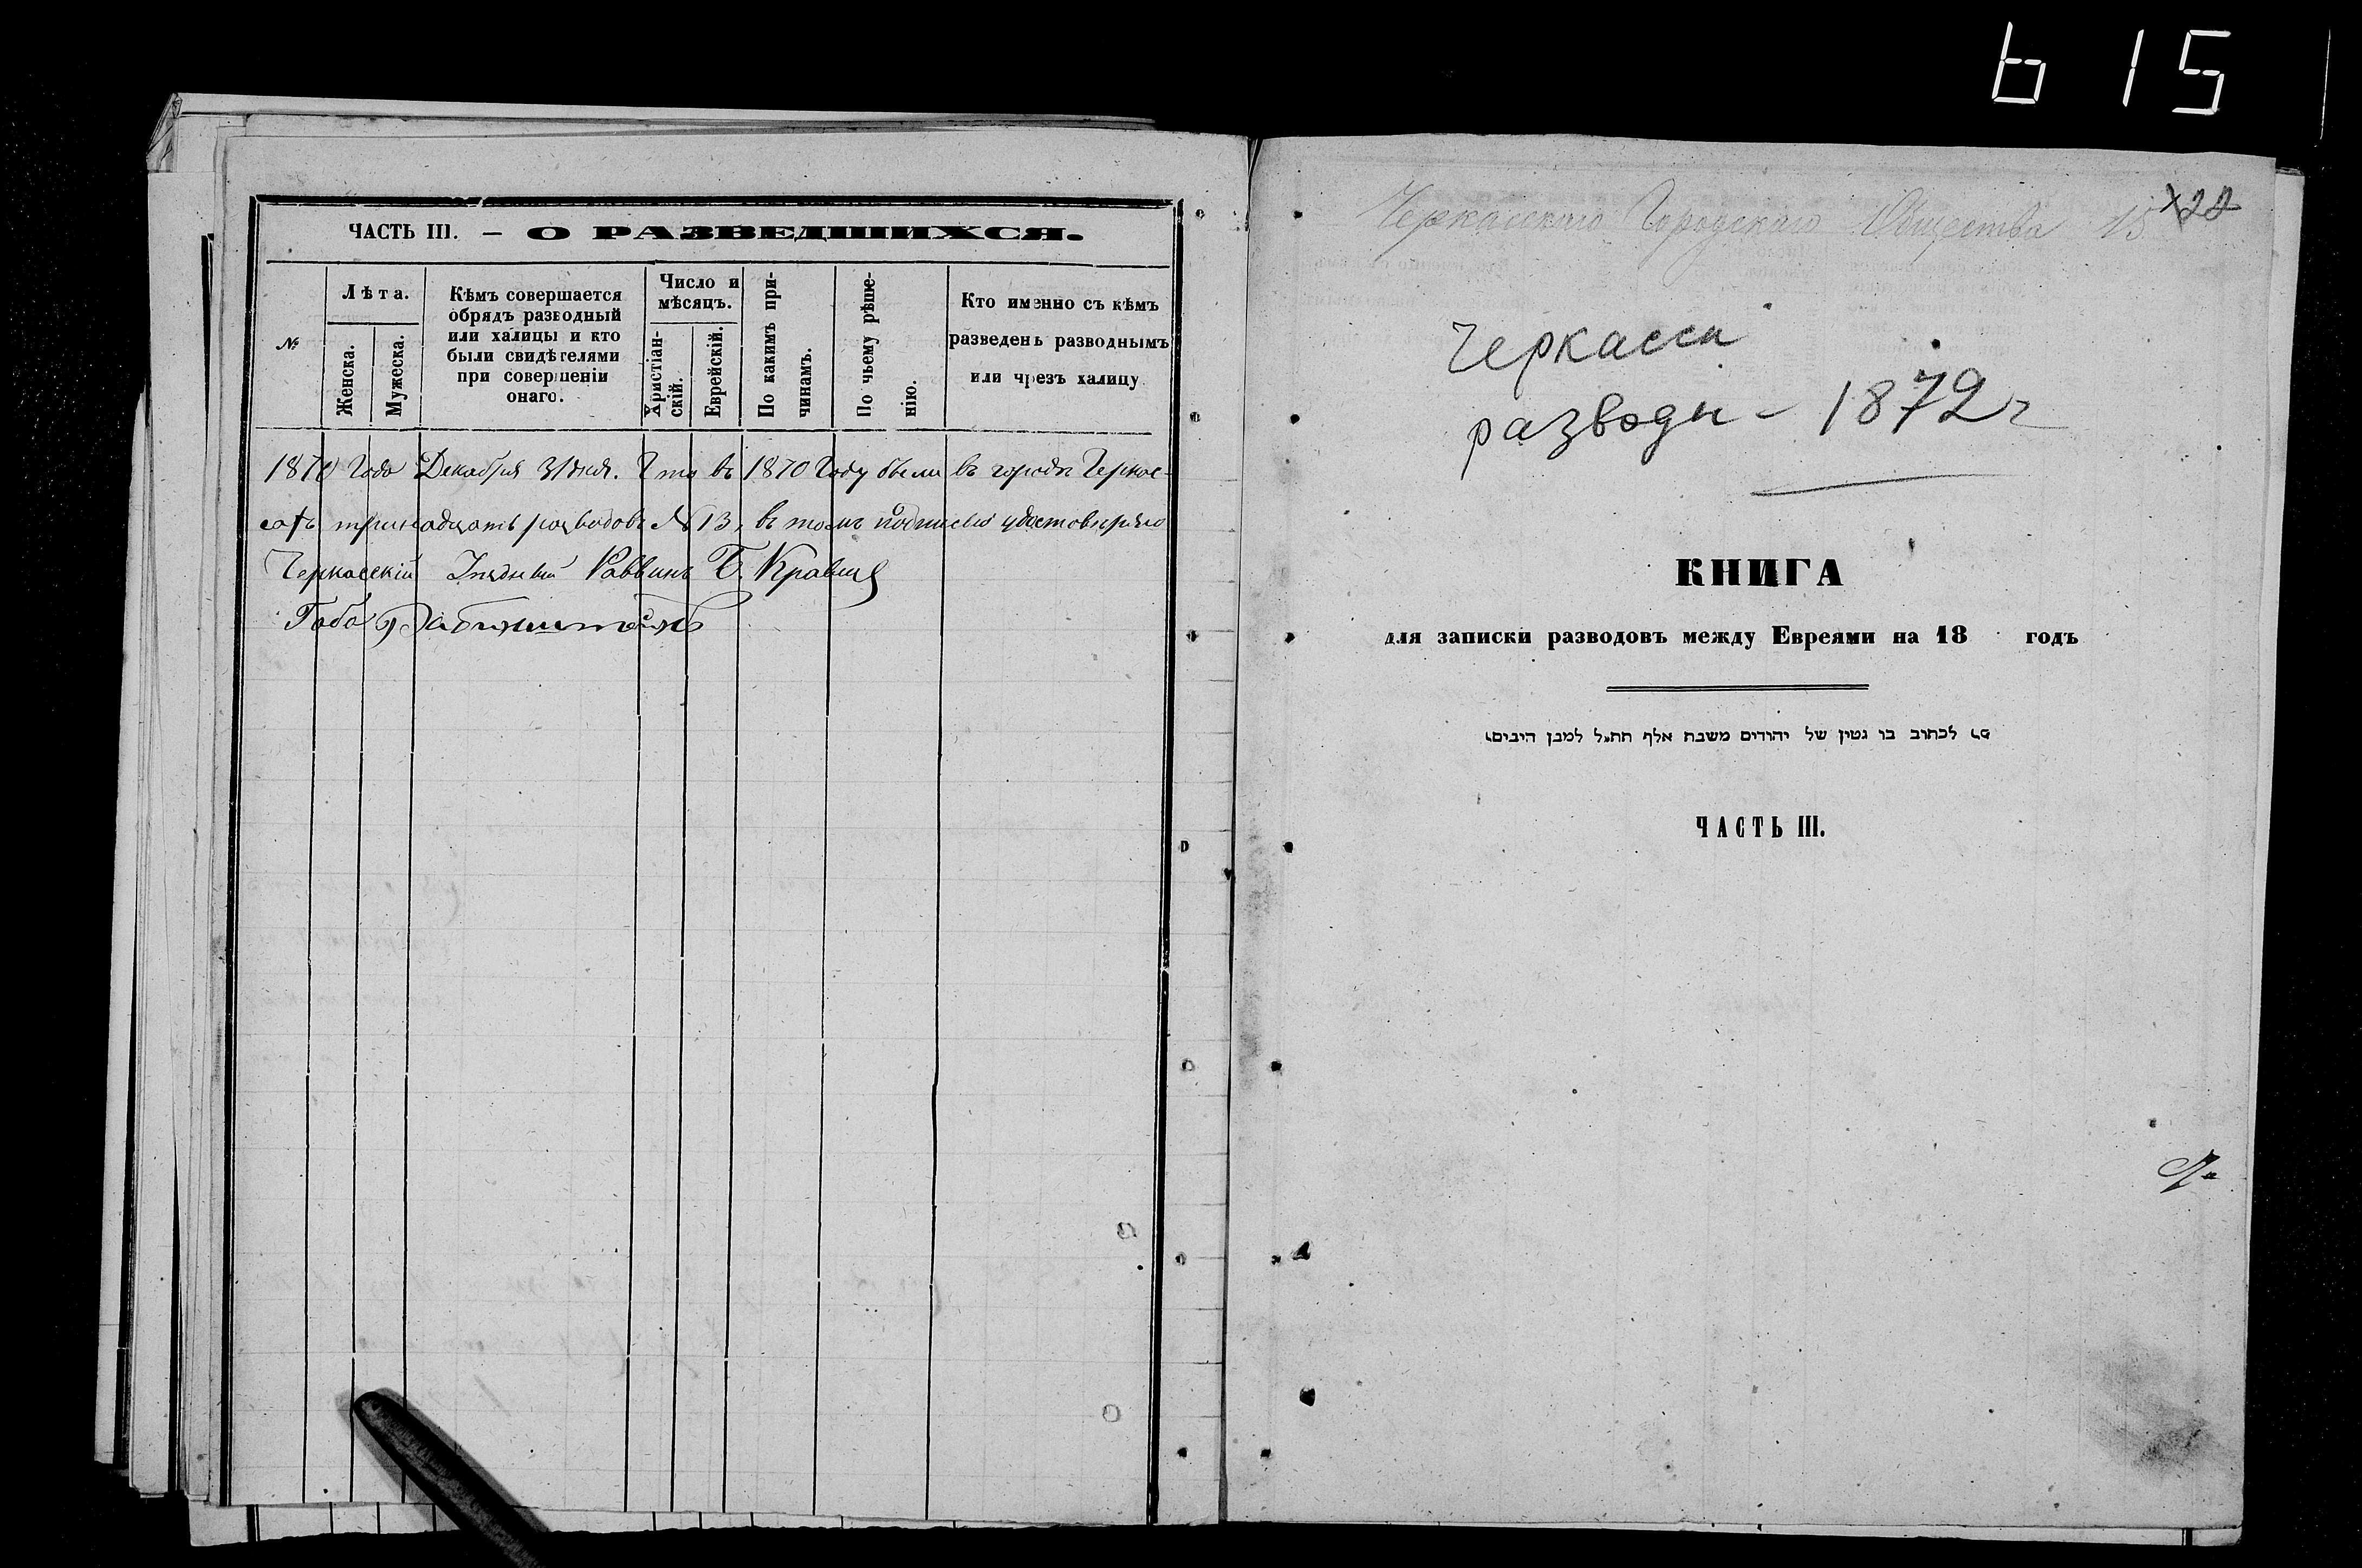 615
ЧАСТЬ III. — О РАЗВЕДШИХСЯ.
№
Лѣта.
Женска.
Мужеска.
Кѣмъ совершается
обрядъ разводный
или халицы и кто
были свидѣтелями
при совершеніи
онаго.
Число и
мѣсяцъ.
Христіан-
скій.
Еврейскій.
По какимъ при-
чинамъ.
По чьему рѣше-
нію.
Кто именно съ кѣмъ
разведенъ разводнымъ
или чрезъ халицу
1870 Года Декабря 31 дня. Что въ 1870 Году были въ городѣ Черкас-
сахъ тринадцать разводовъ № 13, въ томъ подписью удостовѣряю
Черкасскій Раввинъ Б. Кравец
Черкасскаго Городскаго Общества 15
Черкассы
разводы - 1872 г
КНИГА
для записки разводовъ между Евреями на 18 годъ
לכתוב בו גטין של יהודים משבת אלף
ЧАСТЬ III.